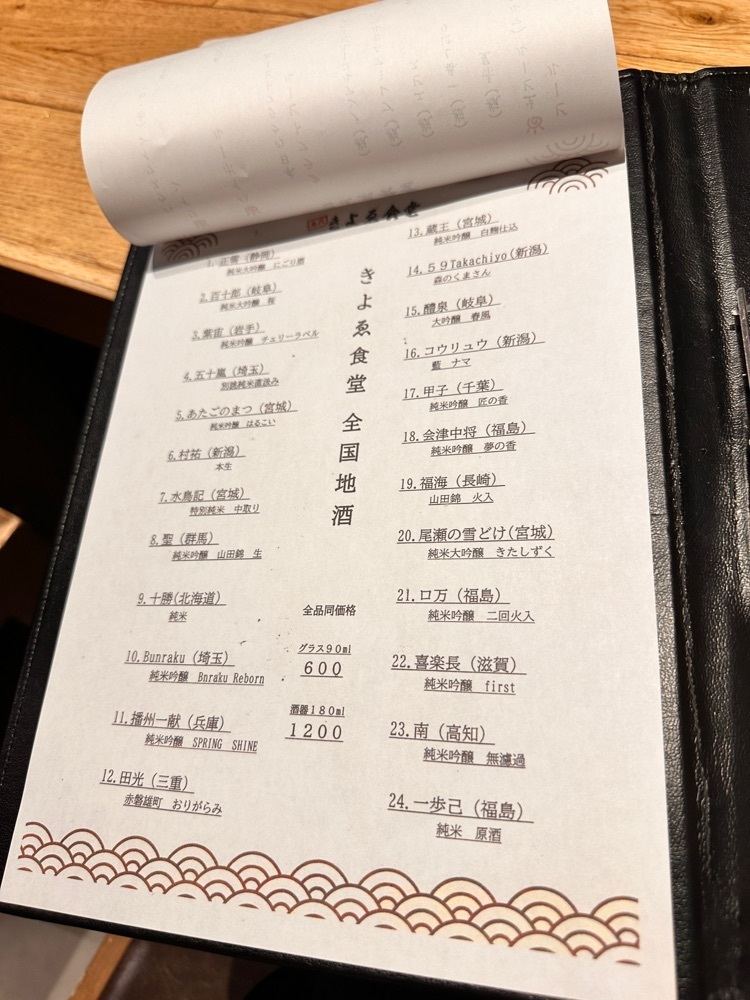 きよゑ食堂
1.正雪（静岡）
純米大吟醸　にごり酒
2.百十郎（岐阜）
純米大吟醸　桜
3.紫宙（岩手）
純米吟醸　チェリーラベル
4.五十嵐（埼玉）
別誂純米直汲み
5.あたごのまつ（宮城）
純米吟醸　はるこい
6.村祐（新潟）
本生
7.水鳥記（宮城）
特別純米　中取り
8.聖（群馬）
純米吟醸　山田錦　生
9.十勝(北海道)
純米
10.Bunraku（埼玉）
純米吟醸　Bnraku Reborn
11.播州一献（兵庫）
純米吟醸　SPRING　SHINE
12.田光（三重）
赤磐雄町　おりがらみ
きよゑ食堂　全国地酒
全品同価格
グラス９０ml
６００
酒器１８０ml
１２００
13.蔵王（宮城）
純米吟醸　白麹仕込
14.５９Takachiyo(新潟)
森のくまさん
15.醴泉（岐阜）
大吟醸　春風
16.コウリュウ（新潟）
藍　ナマ
17.甲子（千葉）
純米吟醸　匠の香
18.会津中将（福島）
純米吟醸　夢の香
19.福海（長崎）
山田錦　火入
20.尾瀬の雪どけ(宮城)
純米大吟醸　きたしずく
21.ロ万（福島）
純米吟醸　二回火入
22.喜楽長（滋賀）
純米吟醸　first
23.南（高知）
純米吟醸　無濾過
24.一歩己（福島）
純米　原酒